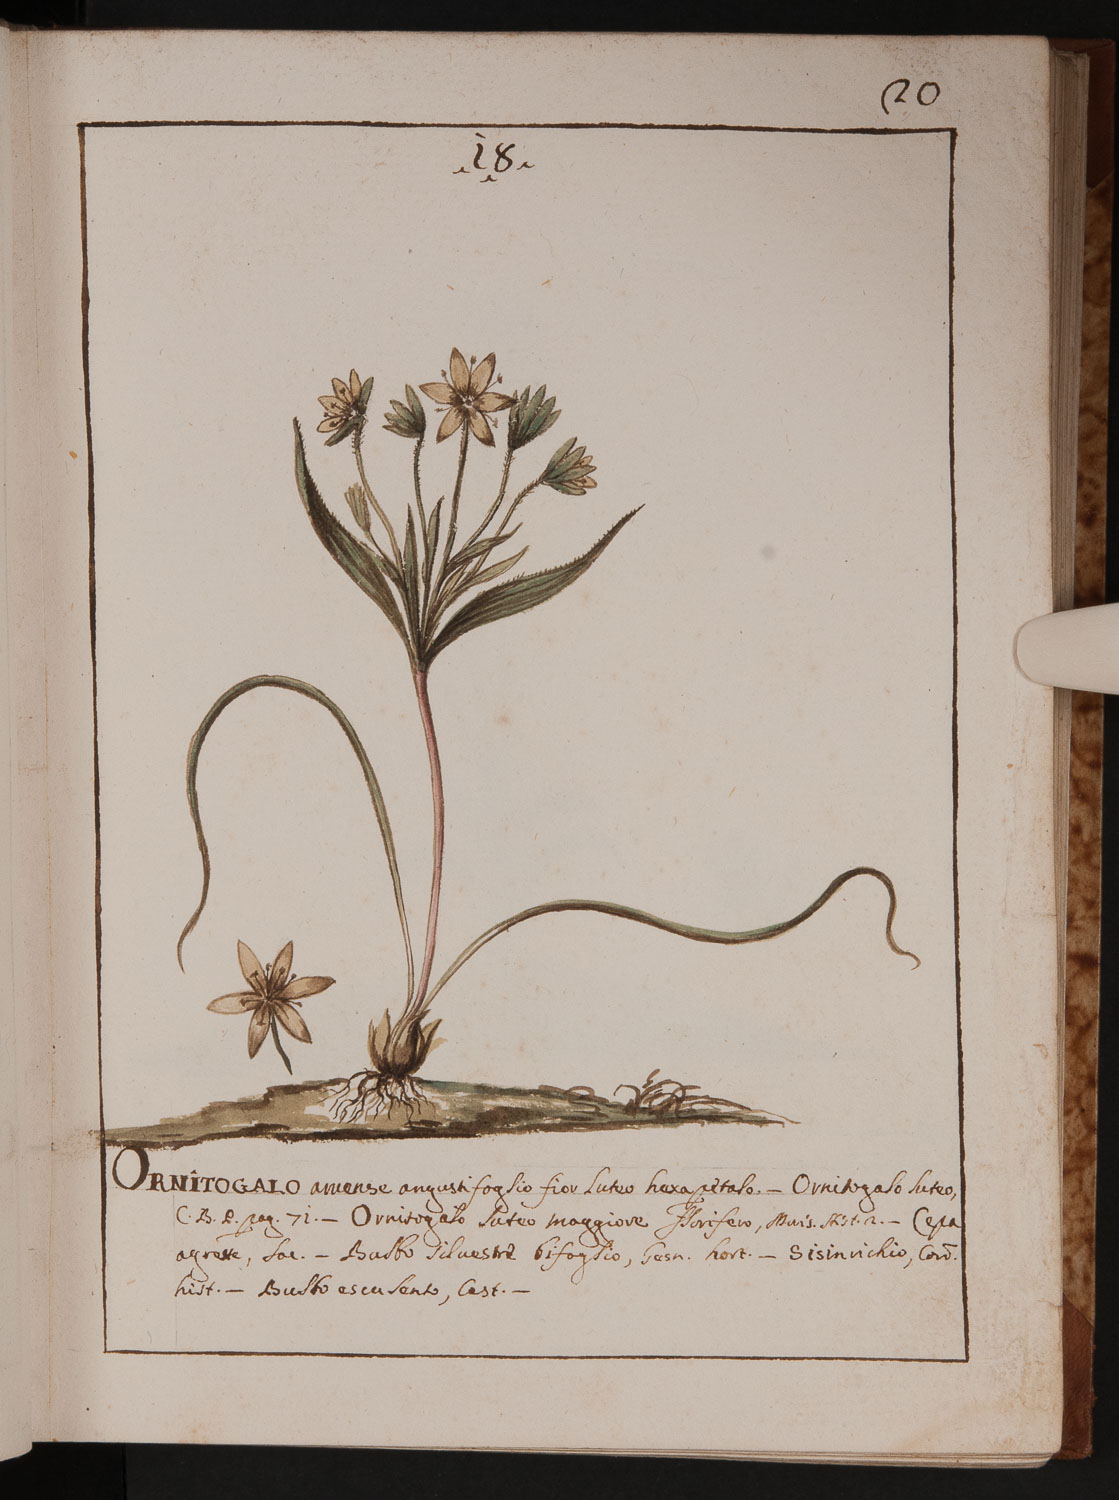 20
.18.
ORNITOGALO aruense angustifoglio fior luteo hexapetalo. – Ornitogalo luteo,
C. B. P. pag. 71. – Ornitogalo luteo maggiore florifero, Muis. hist. 2. – Cepa
agreste, – Bulbo siluestre bifoglio, Gesn. hort. – Sisinrichio, Cord.
hist. – Bulbo esculento, Cast. –